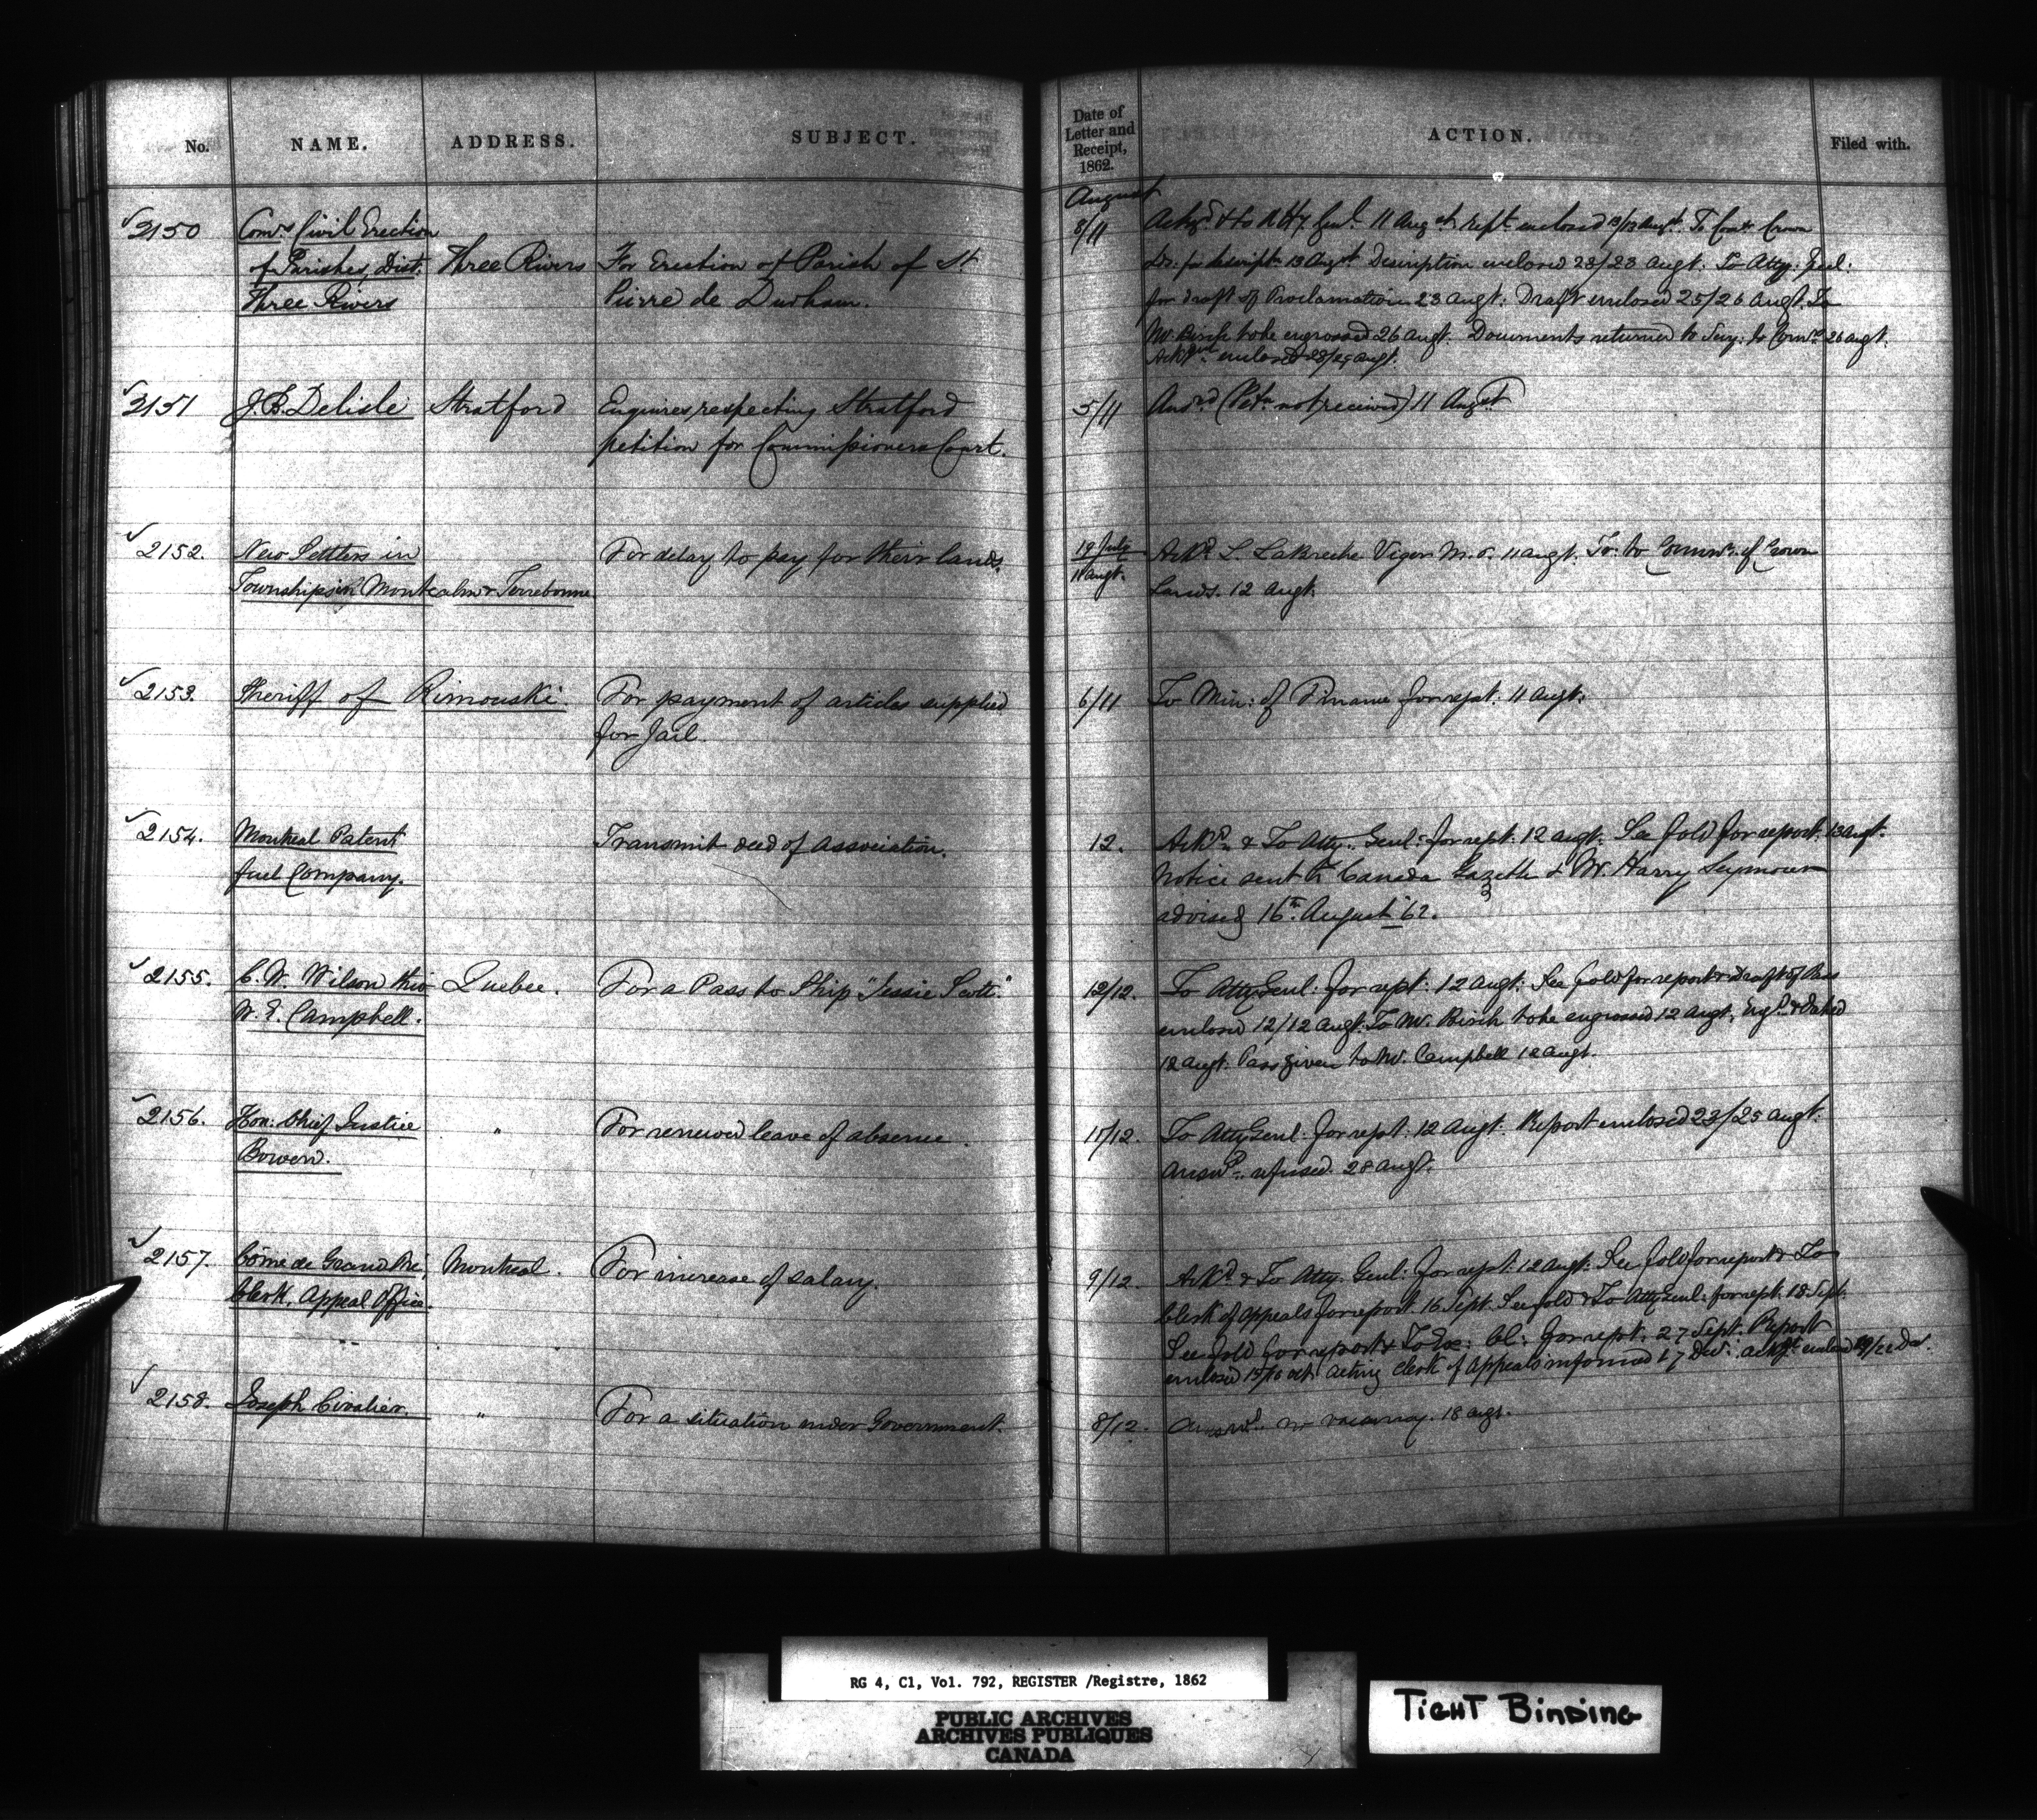 No. NAME. ADDRESS. SUBJECT. Date of Letter and Receipt, 1862. ACTION. Filed with.
August
2150 Comrs Civil Erection of Parishes, Dist: Three Rivers
Three Rivers
For Erection of Parish of St
Pierre de Durham.
8/11
Ackgd & to Atty Genl. 11 Augst rept enclosed 13/13 Augt. To Comr Crown
Ds: for descript: 13 Augst Description enclosed 23/23 Augt: To Atty: Genl:
for draft of Proclamation 23 Augt: Draft enclosed 25/26 Augt. To
Mr Birch to be engrossed 26 Augt. Documents returned to Secy: to Comrs 26 Augt.
enclosed 28/29 Augt.
2151 J. B. Delisle
Stratford
Enquires respecting Stratford
petition for Commissioners Court.
5/11
Ansrd (Petn not received) 11 Augst
2152. New Settlers in
Townships in Montcalm & Terrebonne
For delay to pay for their lands.
19 July
11 Augt.
Ackd. L. Labreche Viger M.P. 11 Augt. To: to Commr. of Crown
Lands. 12 Augt.
2153. Sheriff of Rimouski
For payment of articles supplied
for Jail.
6/11
To Min: of Finance for rept: 11 Augt.
2154. Montreal Patent
fuel Company.
Transmit deed of Association.
12.
Ackd. & To Atty. Genl: for rept: 12 Augt: See fold for report: 13 Augt.
Notice sent to Canada Gazette & Mr. Harry Seymour
advised 16th. August '62.
2155. C. W. Wilson thro
W. E. Campbell.
Quebec.
For a Pass to Ship "Jessie Scott."
12/12.
To Atty Genl: for rept: 12 Augt: See fold for report & Draft of Pass
enclosed 12/12 Augt: To Mr. Birch to be engrossed 12 Augt, Engd. & Dated
12 Augt. Pass given to Mr. Campbell 12 Augt.
2156. Hon: Chief Justice
Bowen.
"
For renewed leave of absence.
11/12.
To Atty Genl: for rept: 12 Augt: Report enclosed 23/25 Augt:
Answd: refused. 28 Augt.
2157. Côme de Grand Pré,
Clerk, Appeal Office.
Montreal.
For increase of salary.
9/12.
Ackd & To Atty. Genl: for rept: 12 Augt: See fold for report & To
Clerk of Appeals for report 16 Sept. See fold & To Atty Genl: for rept. 18 Sept.
See fold for report & To Ex: Cl: for rept: 27 Sept: Report
enclosed 15/16 Oct. Acting Clerk of Appeals informed 17 Dec. enclosed
2158. Joseph Civalier.
"
For a situation under Government.
8/12.
Answd. no vacancy. 18 Augt.
RG 4, C1, Vol. 792, REGISTER /Registre, 1862
PUBLIC ARCHIVES
ARCHIVES PUBLIQUES
CANADA
TIGHT BINDING